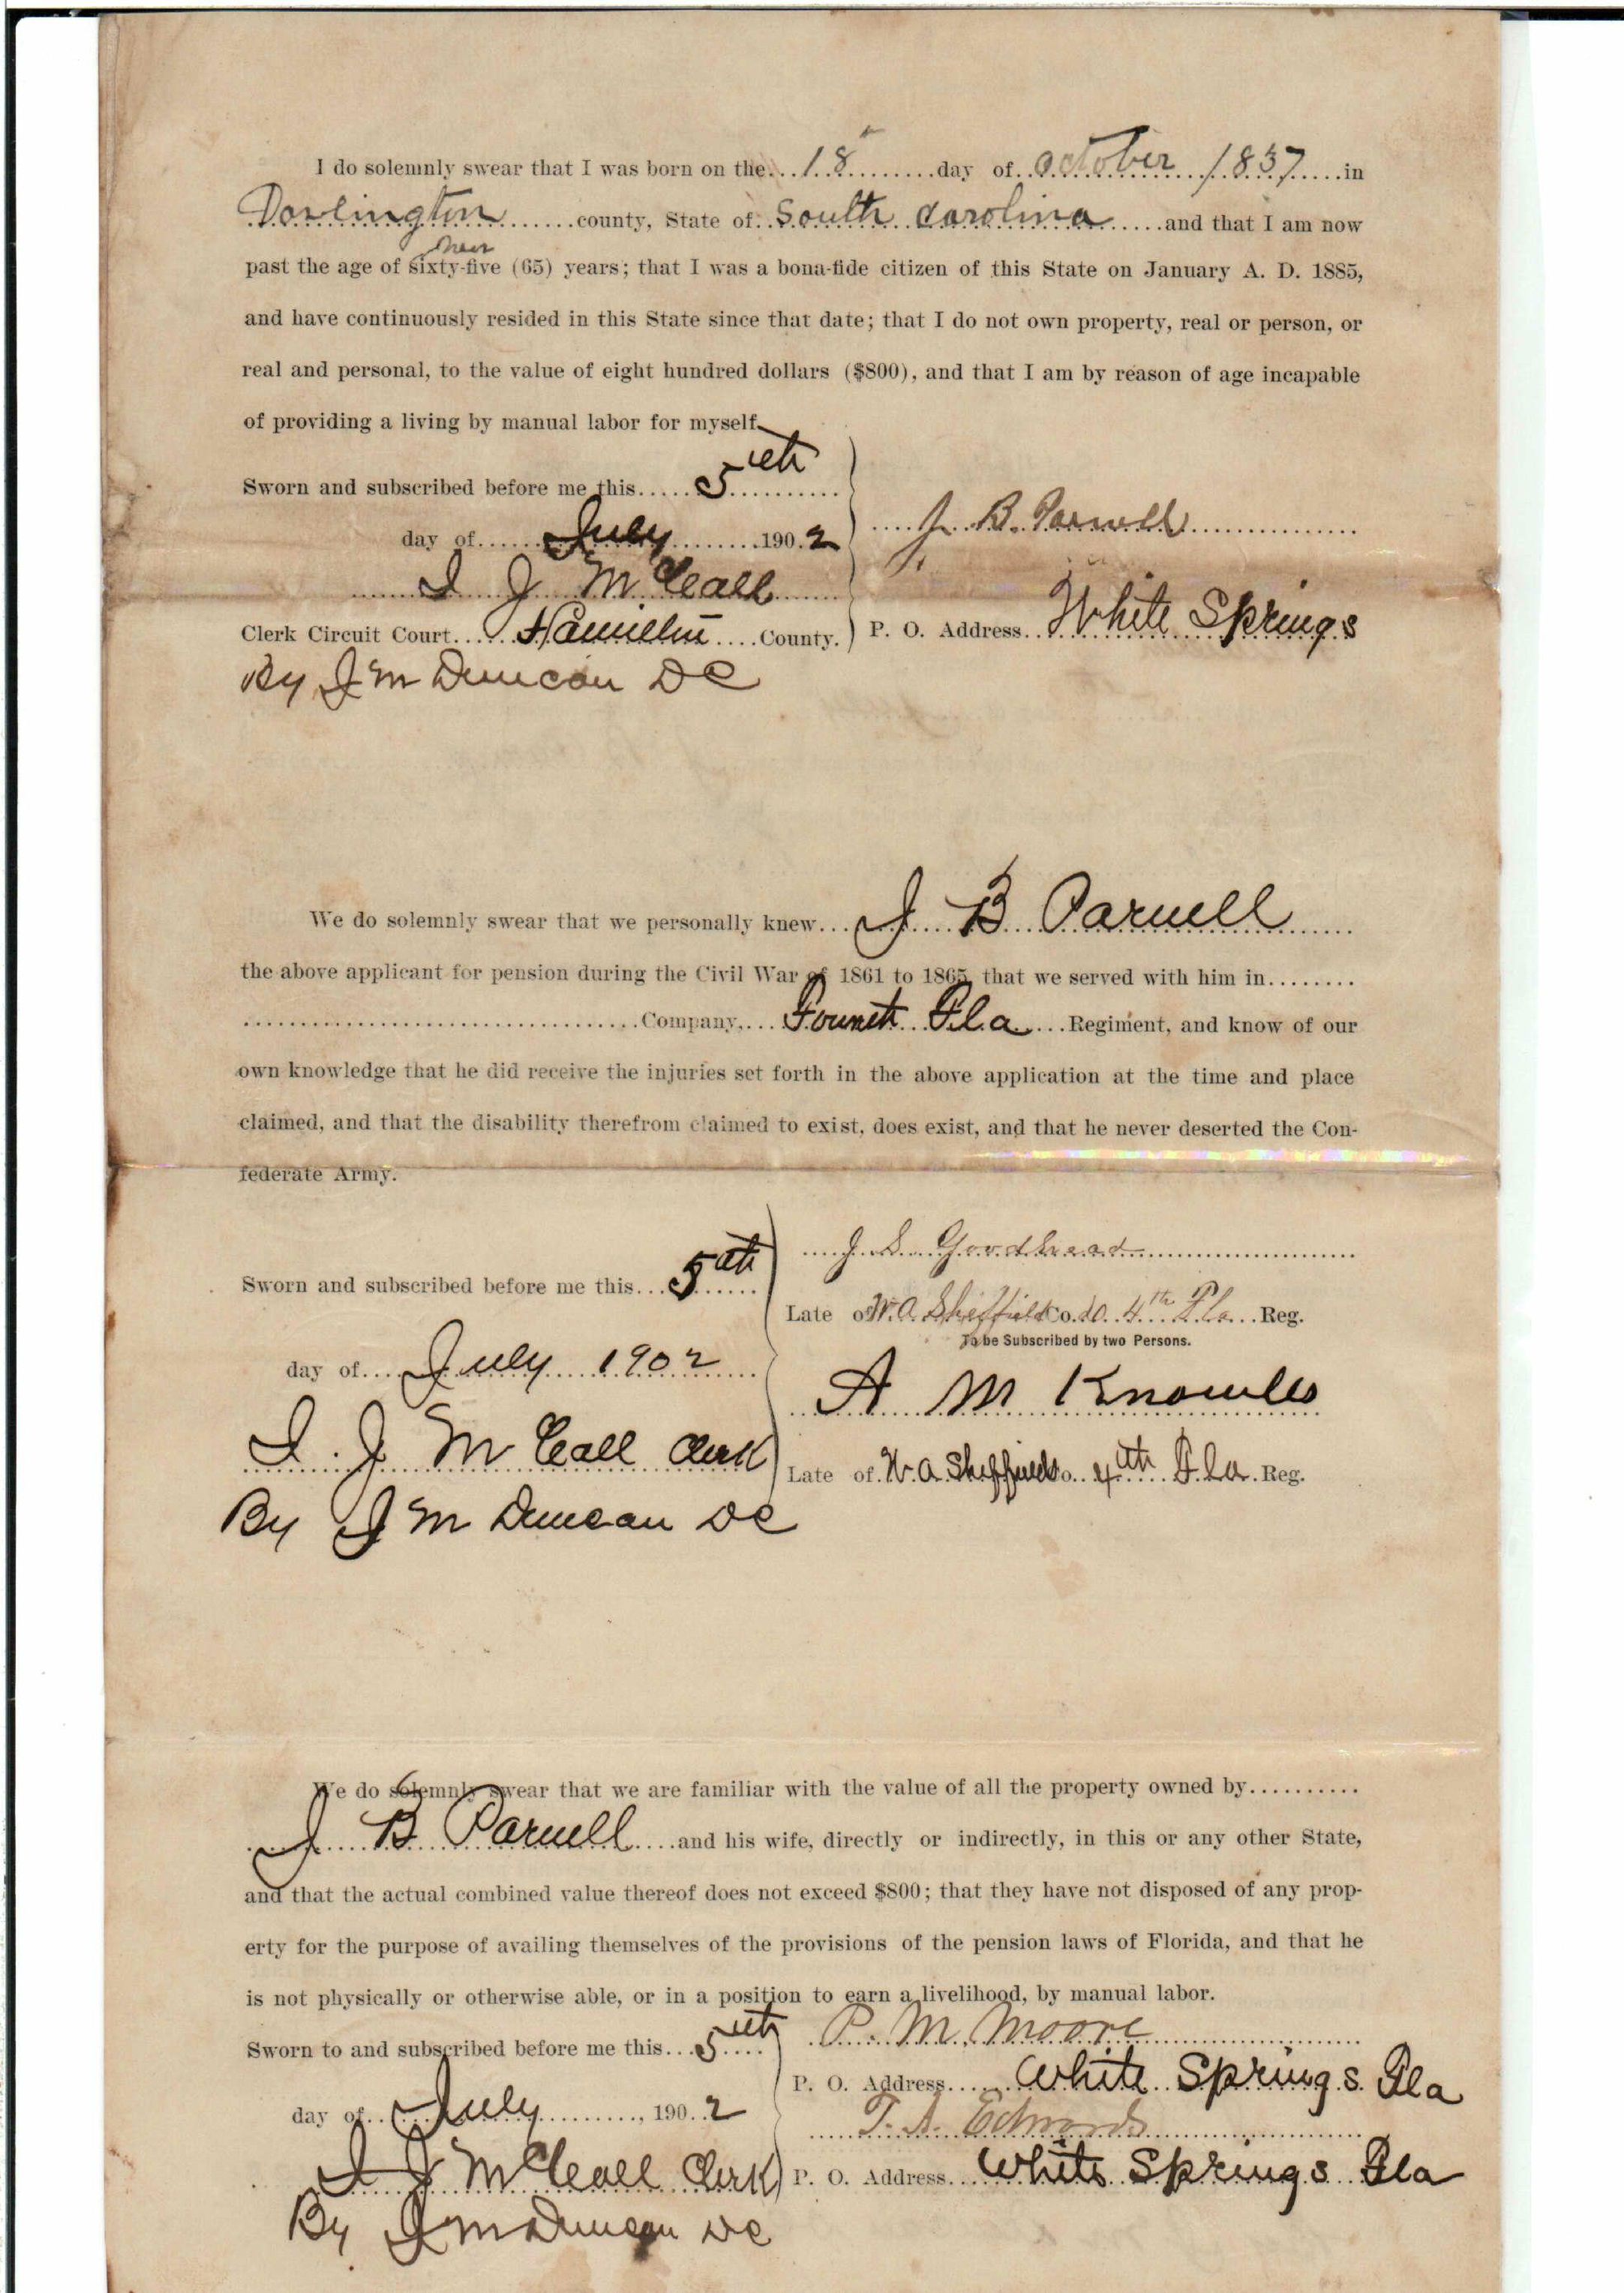 I do solemnly swear that I was born on the 18 day of October 1837 in
Darlington county, State of South Carolina and that I am now
near
past the age of sixty-five (65) years; that I was a bona-fide citizen of this State on January A. D. 1885,
and have continuously resided in this State since that date; that I do not own property, real or person, or
real and personal, to the value of eight hundred dollars ($800), and that I am by reason of age incapable
of providing a living by manual labor for myself.
Sworn and subscribed before me this 5th
day of July 1902
J. B. Parnell
I J McCall
Clerk Circuit Court Hamilton County.
P. O. Address White Springs
By J M Duncan DC
We do solemnly swear that we personally knew J B Parnell
the above applicant for pension during the Civil War of 1861 to 1865, that we served with him in
Company, Fourth Fla Regiment, and know of our
own knowledge that he did receive the injuries set forth in the above application at the time and place
claimed, and that the disability therefrom claimed to exist, does exist, and that he never deserted the Con-
federate Army.
J. S. Goodbread
Sworn and subscribed before me this 5th
Late of W. A. Sheffield Co. 4th Fla Reg.
To be Subscribed by two Persons.
day of July 1902
A M Knowles
I. J McCall Clerk
Late of W. A. Sheffield Co. 4th Fla Reg.
By J M Duncan DC
We do solemnly swear that we are familiar with the value of all the property owned by
J B Parnell and his wife, directly or indirectly, in this or any other State,
and that the actual combined value thereof does not exceed $800; that they have not disposed of any prop-
erty for the purpose of availing themselves of the provisions of the pension laws of Florida, and that he
is not physically or otherwise able, or in a position to earn a livelihood, by manual labor.
Sworn to and subscribed before me this 5th
P. M. Moore
P. O. Address White Springs Fla
day of July, 1902
T. A. Edwards
I J McCall Clerk
P. O. Address White Springs Fla
By J M Duncan DC